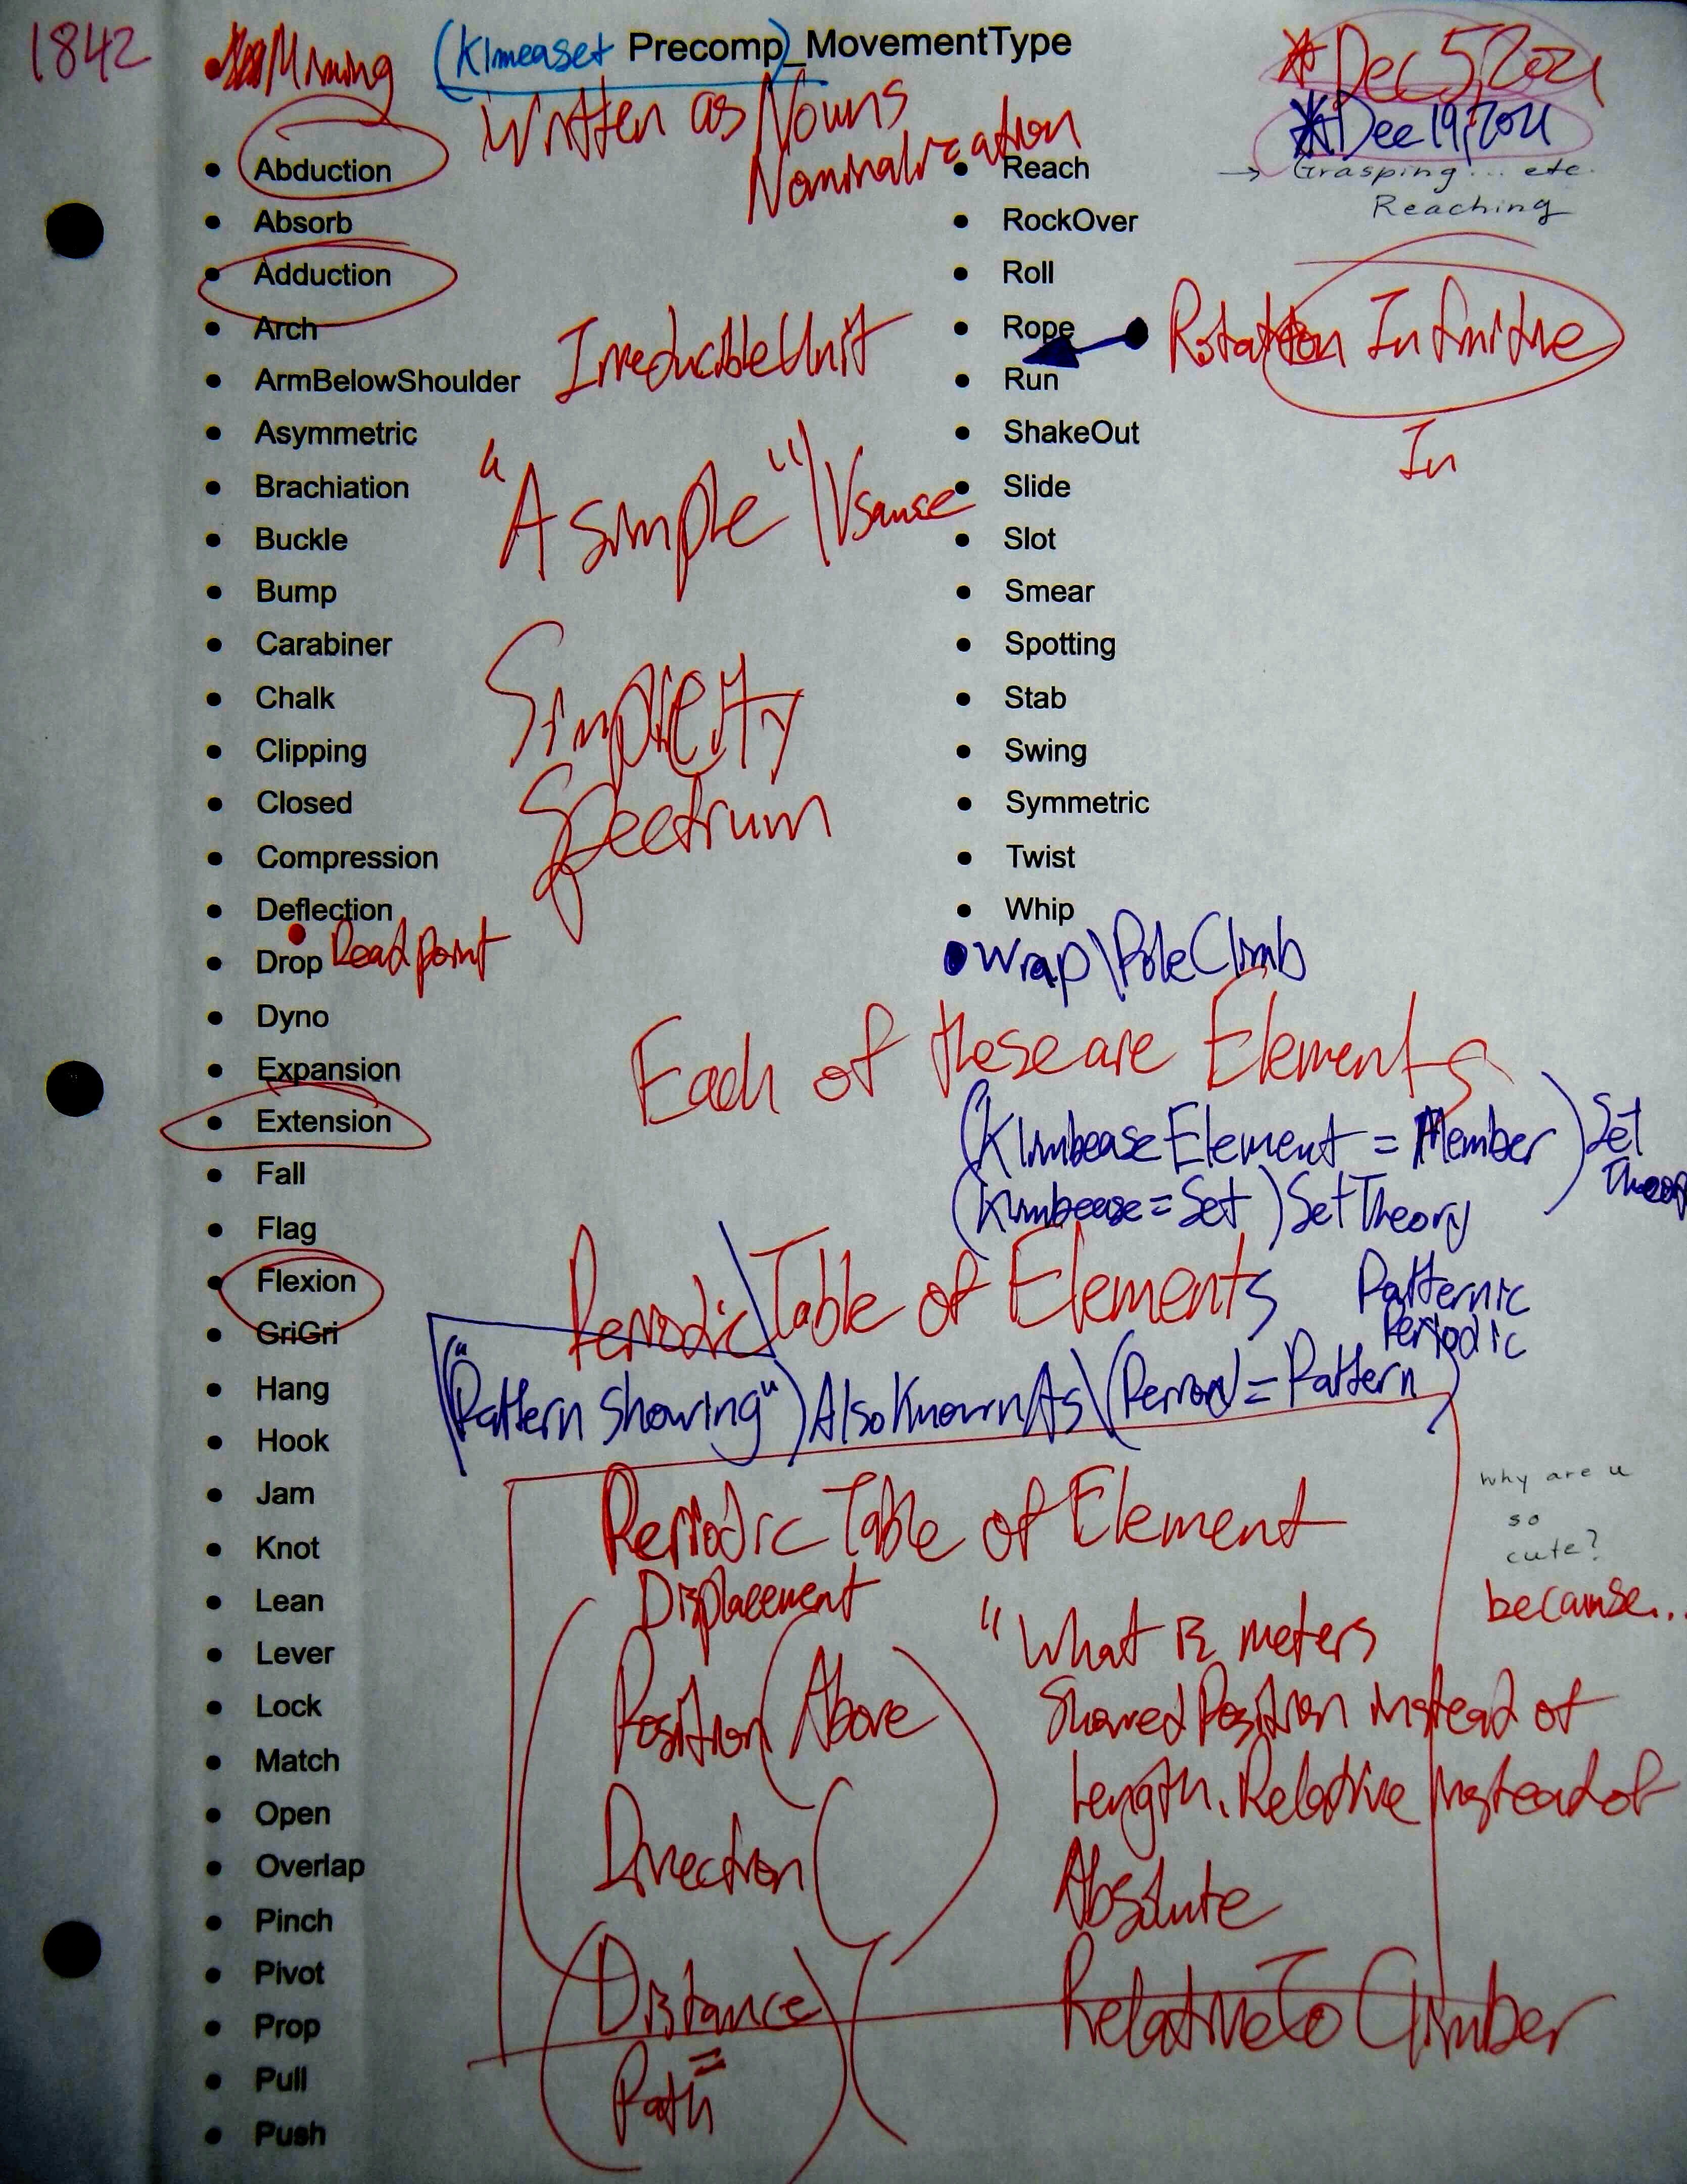 1842
Mining (Klmeaset Precomp)_MovementType
*Dec 5, 2021
*Dec 19, 2021
Written as Nouns
Nominalization
→ Grasping... etc.
Reaching
• Abduction
• Absorb
• Adduction
• Arch
• ArmBelowShoulder
• Asymmetric
• Brachiation
• Buckle
• Bump
• Carabiner
• Chalk
• Clipping
• Closed
• Compression
• Deflection
• Deadpoint
• Drop
• Dyno
• Expansion
• Extension
• Fall
• Flag
• Flexion
• GriGri
• Hang
• Hook
• Jam
• Knot
• Lean
• Lever
• Lock
• Match
• Open
• Overlap
• Pinch
• Pivot
• Prop
• Pull
• Push
IrreducibleUnit
"A simple"\Vsauce
Simplicity
Spectrum
• Reach
• RockOver
• Roll
• Rope
• Run
• ShakeOut
• Slide
• Slot
• Smear
• Spotting
• Stab
• Swing
• Symmetric
• Twist
• Whip
• Wrap\PoleClimb
Rotation Infinitive
In
Each of these are Elements
(KlimbeaseElement = Member) Set
Theory
(Klimbease = Set) SetTheory
Periodic\Table of Elements
Patternic
Periodic
("Pattern showing") AlsoKnownAs\(Period = Pattern)
Periodic Table of Element
Displacement
Position (Above
Direction (
(Distance) (
=
Path
why are u
so
cute?
because...
"What is meters
Shared Position instead of
Length. Relative instead of
Absolute
RelativeTo Climber